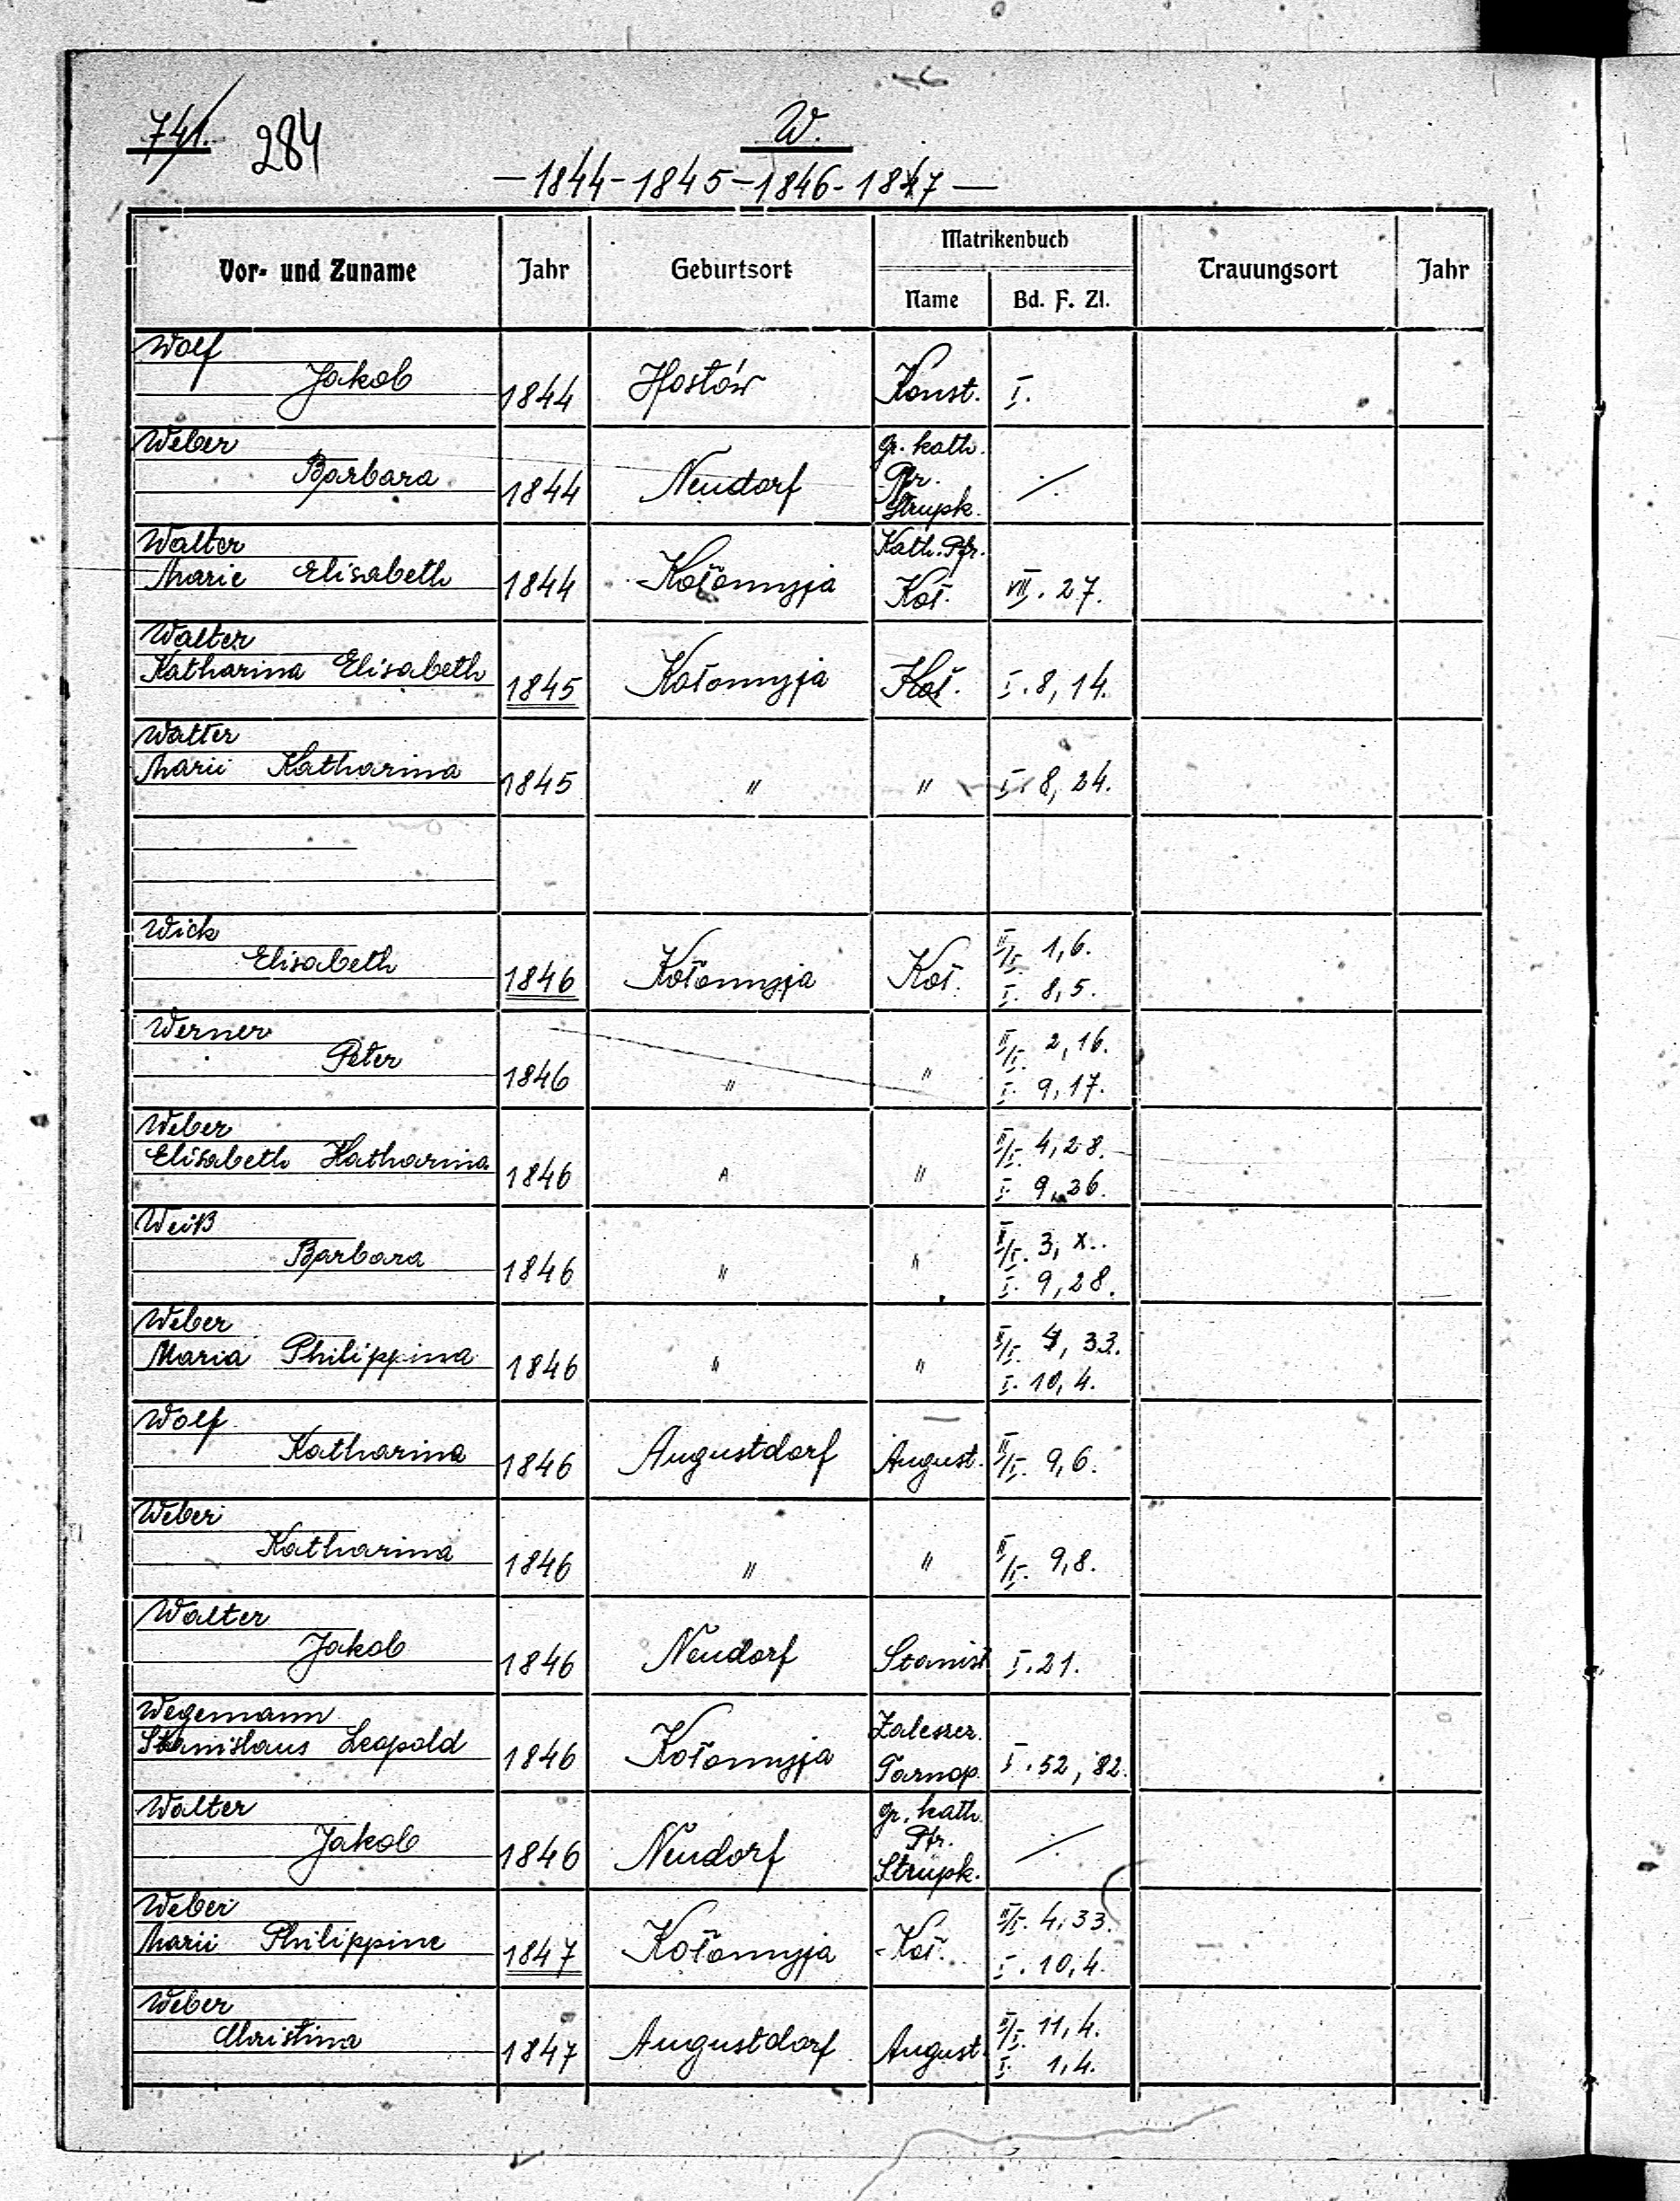 741. 284 W.
– 1844 - 1845 - 1846 - 1847 –
Vor- und Zuname Jahr Geburtsort Matrikenbuch Trauungsort Jahr
Name Bd. F. Zl.
Wolf
Jakob 1844 Hostów Konst. I.
Weber gr. kath.
Barbara 1844 Neudorf Pfr. ./.
Strupk.
Walter Kath. Pfr.
Marie Elisabeth 1844 Kołomyja Koł. VII. 27.
Walter
Katharina Elisabeth 1845 Kołomyja Koł. I. 8, 14.
Walter
Marie Katharina 1845 " " I. 8, 24.
Wick II/I. 1, 6.
Elisabeth 1846 Kołomyja Koł. I. 8, 5.
Werner II/I. 2, 16.
Peter 1846 " " I. 9, 17.
Weber II/I. 4, 28.
Elisabeth Katharina 1846 " " I. 9, 26.
Weiß II/I. 3, x..
Barbara 1846 " " I. 9, 28.
Weber II/I. 4, 33.
Maria Philippina 1846 " " I. 10, 4.
Wolf
Katharina 1846 Augustdorf August. II/I. 9, 6.
Weber
Katharina 1846 " " II/I. 9, 8.
Walter
Jakob 1846 Neudorf Stanisł I. 21.
Wegemann Zaleszcz.
Stanislaus Leopold 1846 Kołomyja Tarnop. I. 52, 82.
Walter gr. kath.
Jakob 1846 Neudorf Pfr. ./.
Strupk.
Weber II/I. 4, 33.
Marie Philippine 1847 Kołomyja Koł. I. 10, 4.
Weber II/I. 11, 4.
Christina 1847 Augustdorf August. I. 1, 4.